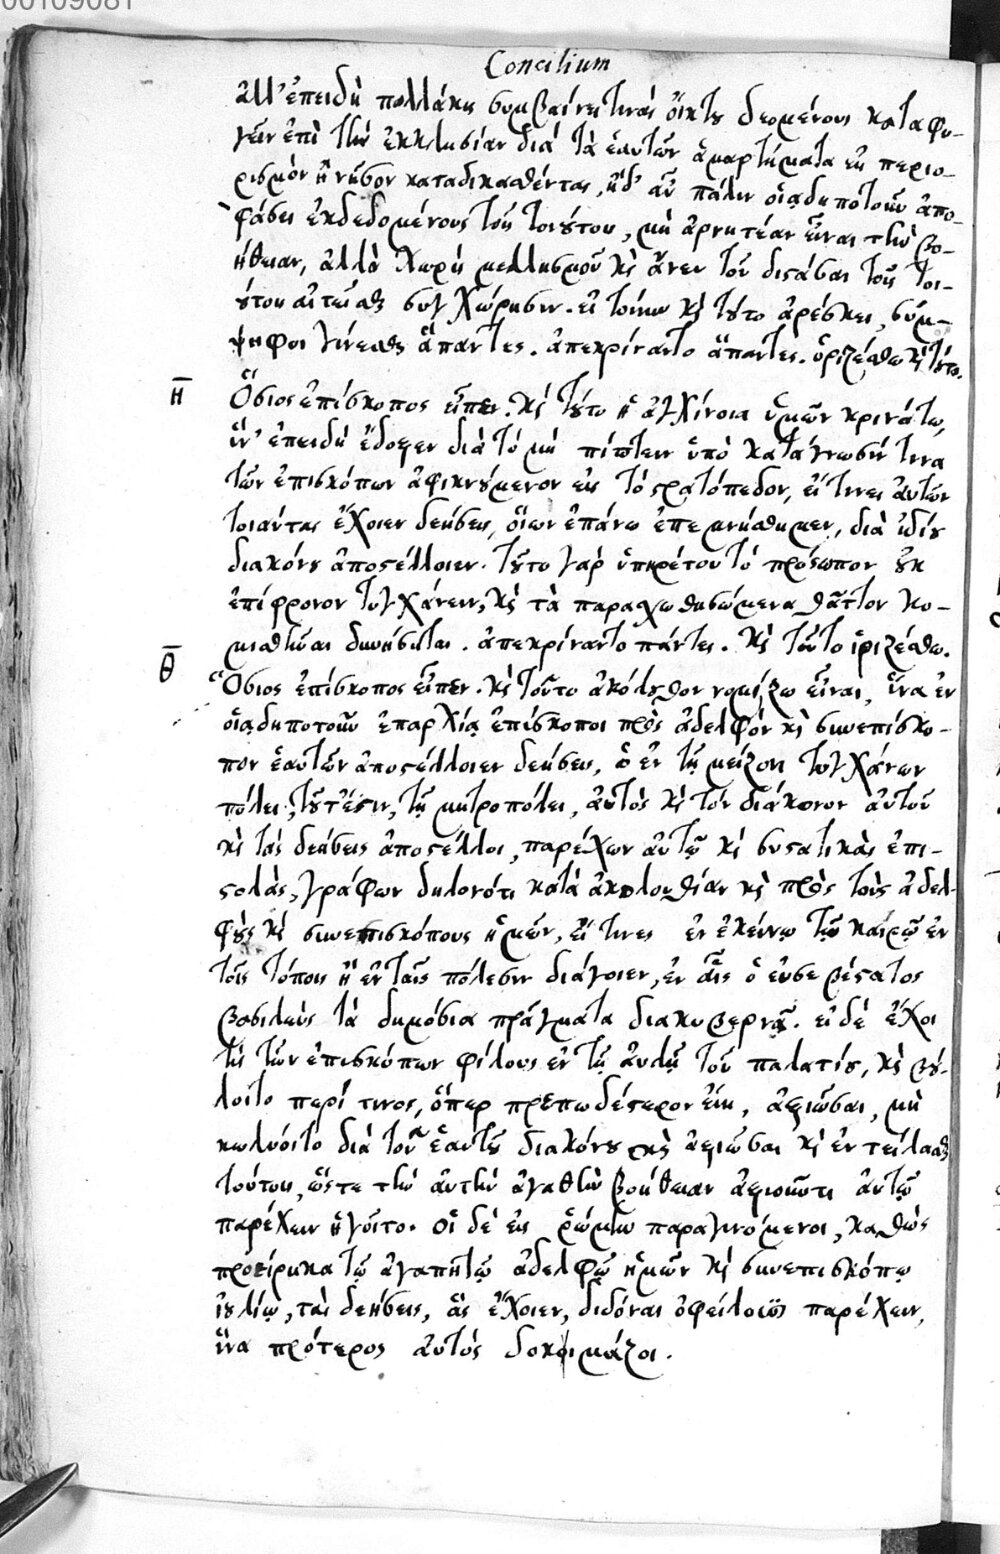 00109081
Concilium
ἀλλ' ἐπειδὴ πολλάκις συμβαίνει τινὰς οἴκτου δεομένους καταφυ-
γεῖν ἐπὶ τὴν ἐκκλησίαν διὰ τὰ ἑαυτῶν ἁμαρτήματα εἰς περιο-
ρισμὸν ἢ νῆσον καταδικασθέντας, ἢ δ' αὖ πάλιν οἱᾳδηποτοῦν ἀπο-
φάσει ἐκδεδομένους τοῖς τοιούτοις, μὴ ἀρνητέαν εἶναι τὴν βο-
ήθειαν, ἀλλὰ χωρὶς μελλησμοῦ καὶ ἄνευ τοῦ διστάσαι τοῖς τοι-
ούτοις αἰτεῖσθαι συγχώρησιν. εἰ τοίνυν καὶ τοῦτο ἀρέσκει, σύμ-
ψηφοι γίνεσθε ἅπαντες. ἀπεκρίναντο ἅπαντες. ὁριζέσθω καὶ τοῦτο.
η Ὅσιος ἐπίσκοπος εἶπεν. καὶ τοῦτο ἡ ἀγχίνοια ὑμῶν κρινάτω,
ἵν' ἐπειδὴ ἔδοξεν διὰ τὸ μὴ πίπτειν ὑπὸ κατάγνωσίν τινα
τῶν ἐπισκόπων ἀφικνούμενον εἰς τὸ στρατόπεδον, εἴ τινες αὐτῶν
τοιαύτας ἔχοιεν δεήσεις, οἵων ἐπάνω ἐπεμνήσθημεν, διὰ ἰδίου
διακόνου ἀποστέλλοιεν. τοῦτο γὰρ ὑπηρέτου τὸ πρόσωπον οὐκ
ἐπίφθονον τυγχάνειν, καὶ τὰ παραχωθησώμενα θᾶττον κο-
μισθῆναι δυνήσεται. ἀπεκρίναντο πάντες. καὶ τοῦτο ὁριζέσθω.
θ Ὅσιος ἐπίσκοπος εἶπεν. καὶ τοῦτο ἀκόλουθον νομίζω εἶναι, ἵνα ἐν
οἱᾳδηποτοῦν ἐπαρχίᾳ ἐπίσκοποι πρὸς ἀδελφὸν καὶ συνεπίσκο-
πον ἑαυτῶν ἀποστέλλοιεν δεήσεις, ὁ ἐν τῇ μείζονι τυγχάνων
πόλει, τουτέστιν, τῇ μητροπόλει, αὐτὸς καὶ τὸν διάκονον αὐτοῦ
καὶ τὰς δεήσεις ἀποστέλλοι, παρέχων αὐτῷ καὶ συστατικὰς ἐπι-
στολὰς, γράφων δηλονότι κατὰ ἀκολουθίαν καὶ πρὸς τοὺς ἀδελ-
φοὺς καὶ συνεπισκόπους ἡμῶν, εἴ τινες ἐν ἐκείνῳ τῷ καιρῷ ἐν
τοῖς τόποις ἢ ἐν ταῖς πόλεσιν διάγοιεν, ἐν αἷς ὁ εὐσεβέστατος
βασιλεὺς τὰ δημόσια πράγματα διακυβερνᾷ. εἰ δὲ ἔχοι
τις τῶν ἐπισκόπων φίλους ἐν τῇ αὐλῇ τοῦ παλατίου, καὶ βού-
λοιτο περί τινος, ὅπερ πρεπωδέστερον εἴη, ἀξιῶσαι, μὴ
κωλυόιτο διὰ τοῦ ἑαυτοῦ διακόνου καὶ ἀξιῶσαι καὶ ἐντείλασθαι
τούτοις, ὥστε τὴν αὐτὴν ἀγαθὴν βοήθειαν ἀξιοῦντι αὐτῷ
παρέχειν ἡγοῖτο. οἱ δὲ εἰς ῥώμην παραγινόμενοι, καθὼς
προείρηκα τῷ ἀγαπητῷ ἀδελφῷ ἡμῶν καὶ συνεπισκόπῳ
ἰουλίῳ, τὰς δεήσεις, ἃς ἔχοιεν, διδόναι ὀφείλοιεν παρέχειν,
ἵνα πρότερος αὐτὸς δοκιμάζοι.